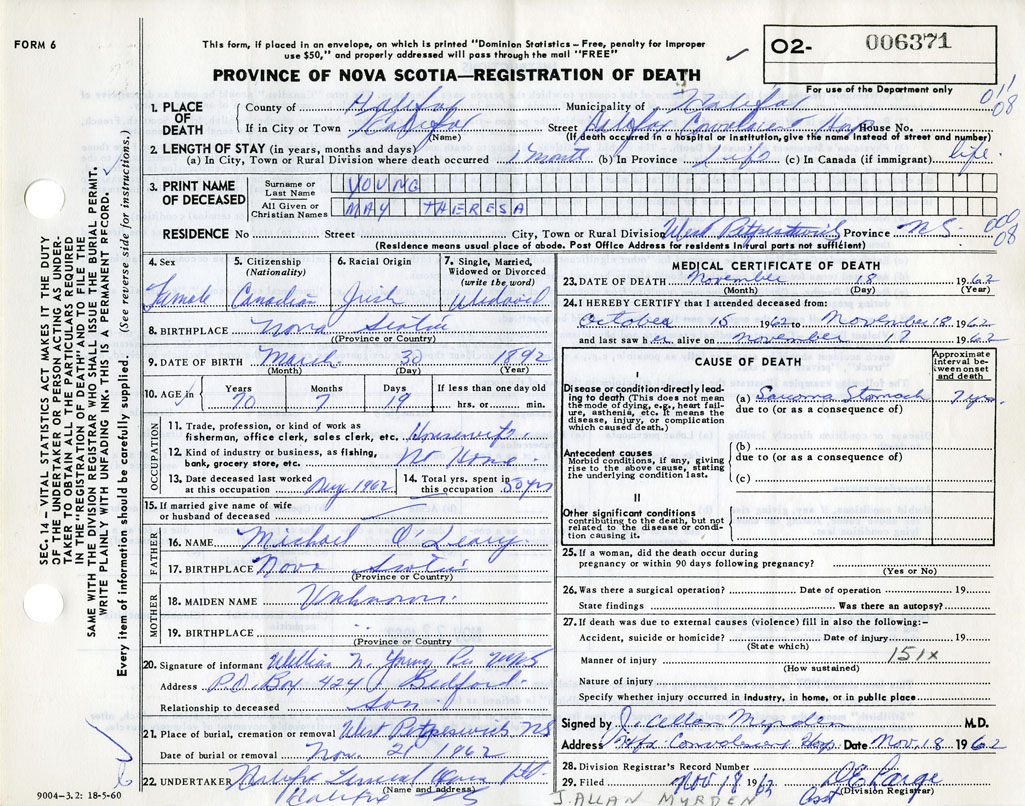 FORM 6
This form, if placed in an envelope, on which is printed "Dominion Statistics – Free, penalty for improper
use $50," and properly addressed will pass through the mail "FREE"
PROVINCE OF NOVA SCOTIA—REGISTRATION OF DEATH
O2- 006371
For use of the Department only
011
08
1. PLACE OF DEATH
County of Halifax Municipality of Halifax
If in City or Town Halifax Street Halifax Convalescent Hosp House No.
(Name) (If death occurred in a hospital or institution, give the name instead of street and number)
2. LENGTH OF STAY (in years, months and days)
(a) In City, Town or Rural Division where death occurred 1 month (b) In Province Life (c) In Canada (if immigrant) life
3. PRINT NAME OF DECEASED
Surname or Last Name YOUNG
All Given or Christian Names MAY THERESA
RESIDENCE No Street City, Town or Rural Division West Petpeswick Province N.S.
(Residence means usual place of abode. Post Office Address for residents in rural parts not sufficient)
08
4. Sex Female
5. Citizenship (Nationality) Canadian
6. Racial Origin Irish
7. Single, Married, Widowed or Divorced (write the word) Widowed
8. BIRTHPLACE Nova Scotia
(Province or Country)
9. DATE OF BIRTH March 30 1892
(Month) (Day) (Year)
10. AGE in Years 70 Months 7 Days 19 If less than one day old hrs. or min.
OCCUPATION
11. Trade, profession, or kind of work as
fisherman, office clerk, sales clerk, etc. Housewife
12. Kind of industry or business, as fishing,
bank, grocery store, etc. At Home
13. Date deceased last worked
at this occupation Aug 1962
14. Total yrs. spent in
this occupation 50 yrs
15. If married give name of wife
or husband of deceased
FATHER
16. NAME Michael O'Leary
17. BIRTHPLACE Nova Scotia
(Province or Country)
MOTHER
18. MAIDEN NAME Unknown
19. BIRTHPLACE ..
(Province or Country)
20. Signature of informant William N. Young Per
Address P.O. Box 424 Bedford
Relationship to deceased Son
21. Place of burial, cremation or removal West Petpeswick NS
Date of burial or removal Nov. 21 1962
22. UNDERTAKER Halifax Funeral Home Ltd.
(Name and address)
Halifax NS
MEDICAL CERTIFICATE OF DEATH
23. DATE OF DEATH November 18 1962
(Month) (Day) (Year)
24. I HEREBY CERTIFY that I attended deceased from:
October 15 1962 to November 18 1962
and last saw her alive on November 17 1962
CAUSE OF DEATH
Approximate interval between onset and death
I
Disease or condition directly leading to death (This does not mean the mode of dying, e.g., heart failure, asthenia, etc. It means the disease, injury, or complication which caused death.)
(a) Sarcoma Stomach 7 yrs.
due to (or as a consequence of)
Antecedent causes
Morbid conditions, if any, giving rise to the above cause, stating the underlying condition last.
(b)
due to (or as a consequence of)
(c)
II
Other significant conditions contributing to the death, but not related to the disease or condition causing it.
25. If a woman, did the death occur during
pregnancy or within 90 days following pregnancy?
(Yes or No)
26. Was there a surgical operation? Date of operation 19
State findings Was there an autopsy?
27. If death was due to external causes (violence) fill in also the following:-
Accident, suicide or homicide? Date of injury 19
(State which)
Manner of injury 151x
(How sustained)
Nature of injury
Specify whether injury occurred in industry, in home, or in public place
Signed by J. Allan Myrden M.D.
Address Hfx Convalescent Hosp. Date Nov. 18 1962
28. Division Registrar's Record Number
29. Filed Nov 18 1962
(Division Registrar)
Asst
J. ALLAN MYRDEN
SEC. 14 – VITAL STATISTICS ACT MAKES IT THE DUTY
OF THE UNDERTAKER OR PERSON ACTING AS UNDERTAKER
TO OBTAIN ALL THE PARTICULARS REQUIRED
IN THE "REGISTRATION OF DEATH" AND TO FILE THE
SAME WITH THE DIVISION REGISTRAR WHO SHALL ISSUE THE BURIAL PERMIT.
WRITE PLAINLY WITH UNFADING INK. THIS IS A PERMANENT RECORD.
Every item of information should be carefully supplied. (See reverse side for instructions.)
9004-3.2: 18-5-60